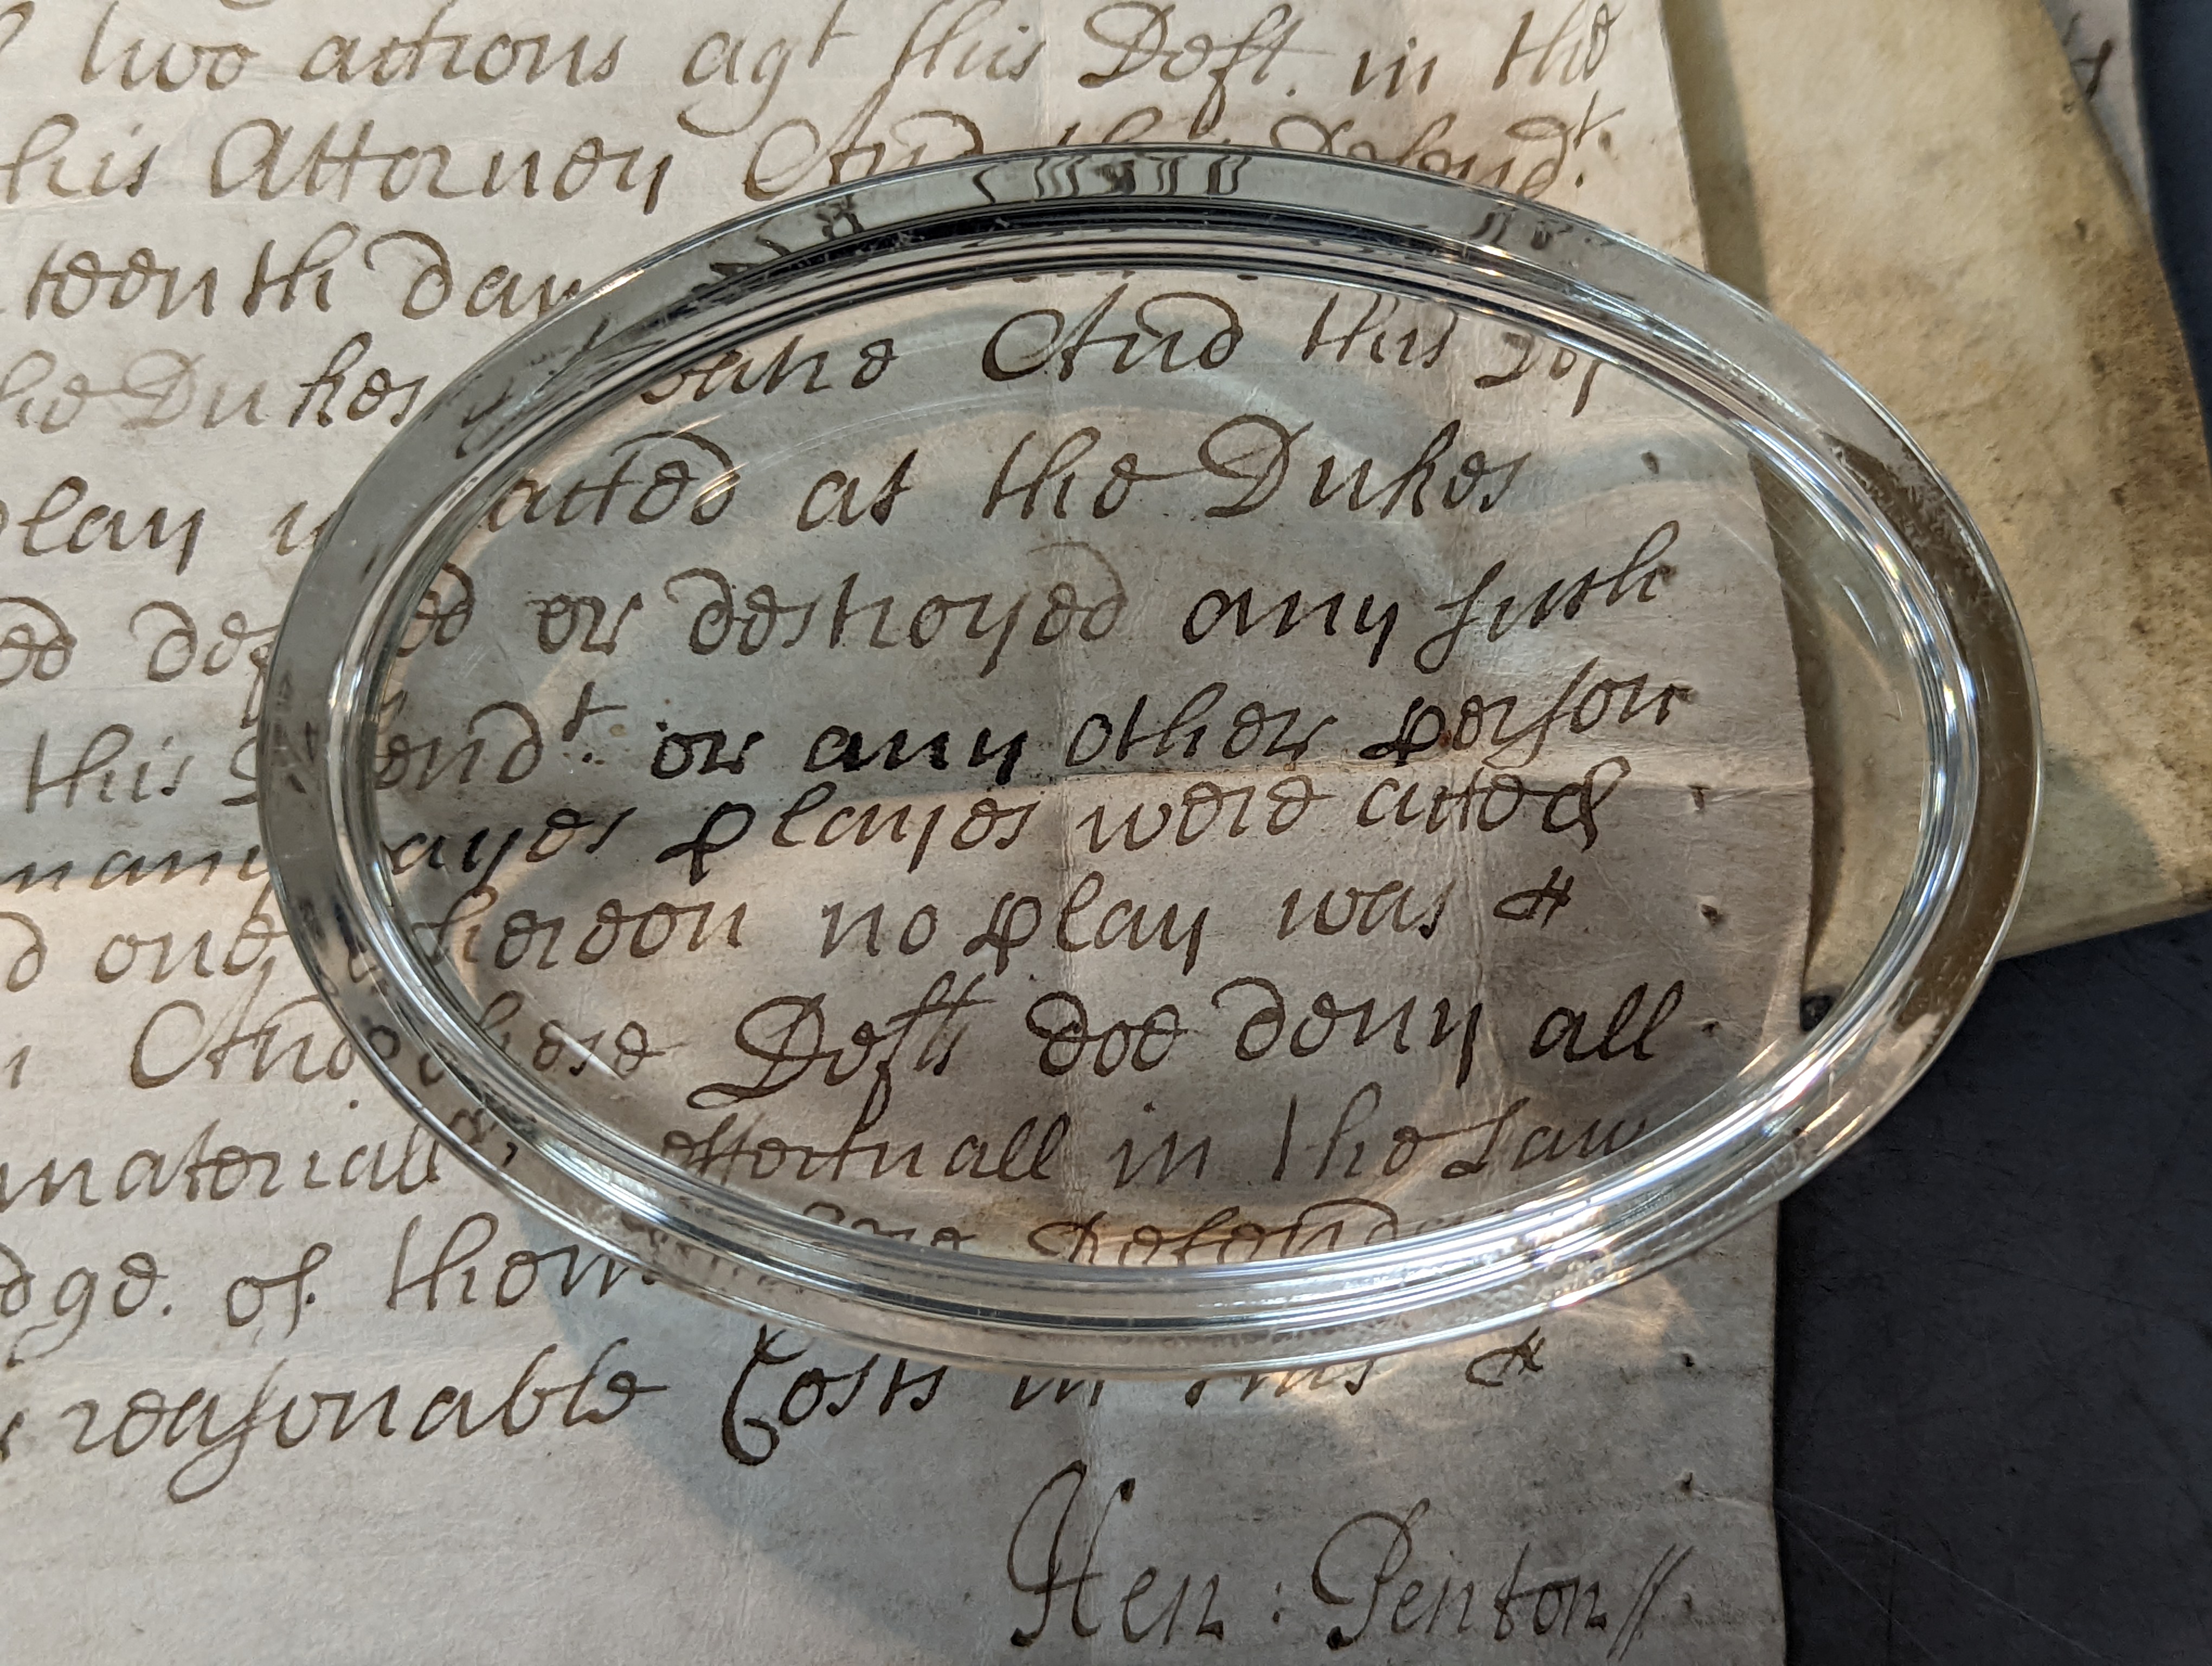 two actions agt this Deft. in the
his Attorney And this Defendt.
teenth day
the Dukes And this Def
play acted at the Dukes
ed def ed or destroyed any such
this endt. or any other person
many ayes playes were acted &
d one thereon no play was
And these Defts doe deny all
materiall effectuall in the Law
dge. of them Defend
reasonable Costs in this
Hen: Penton//